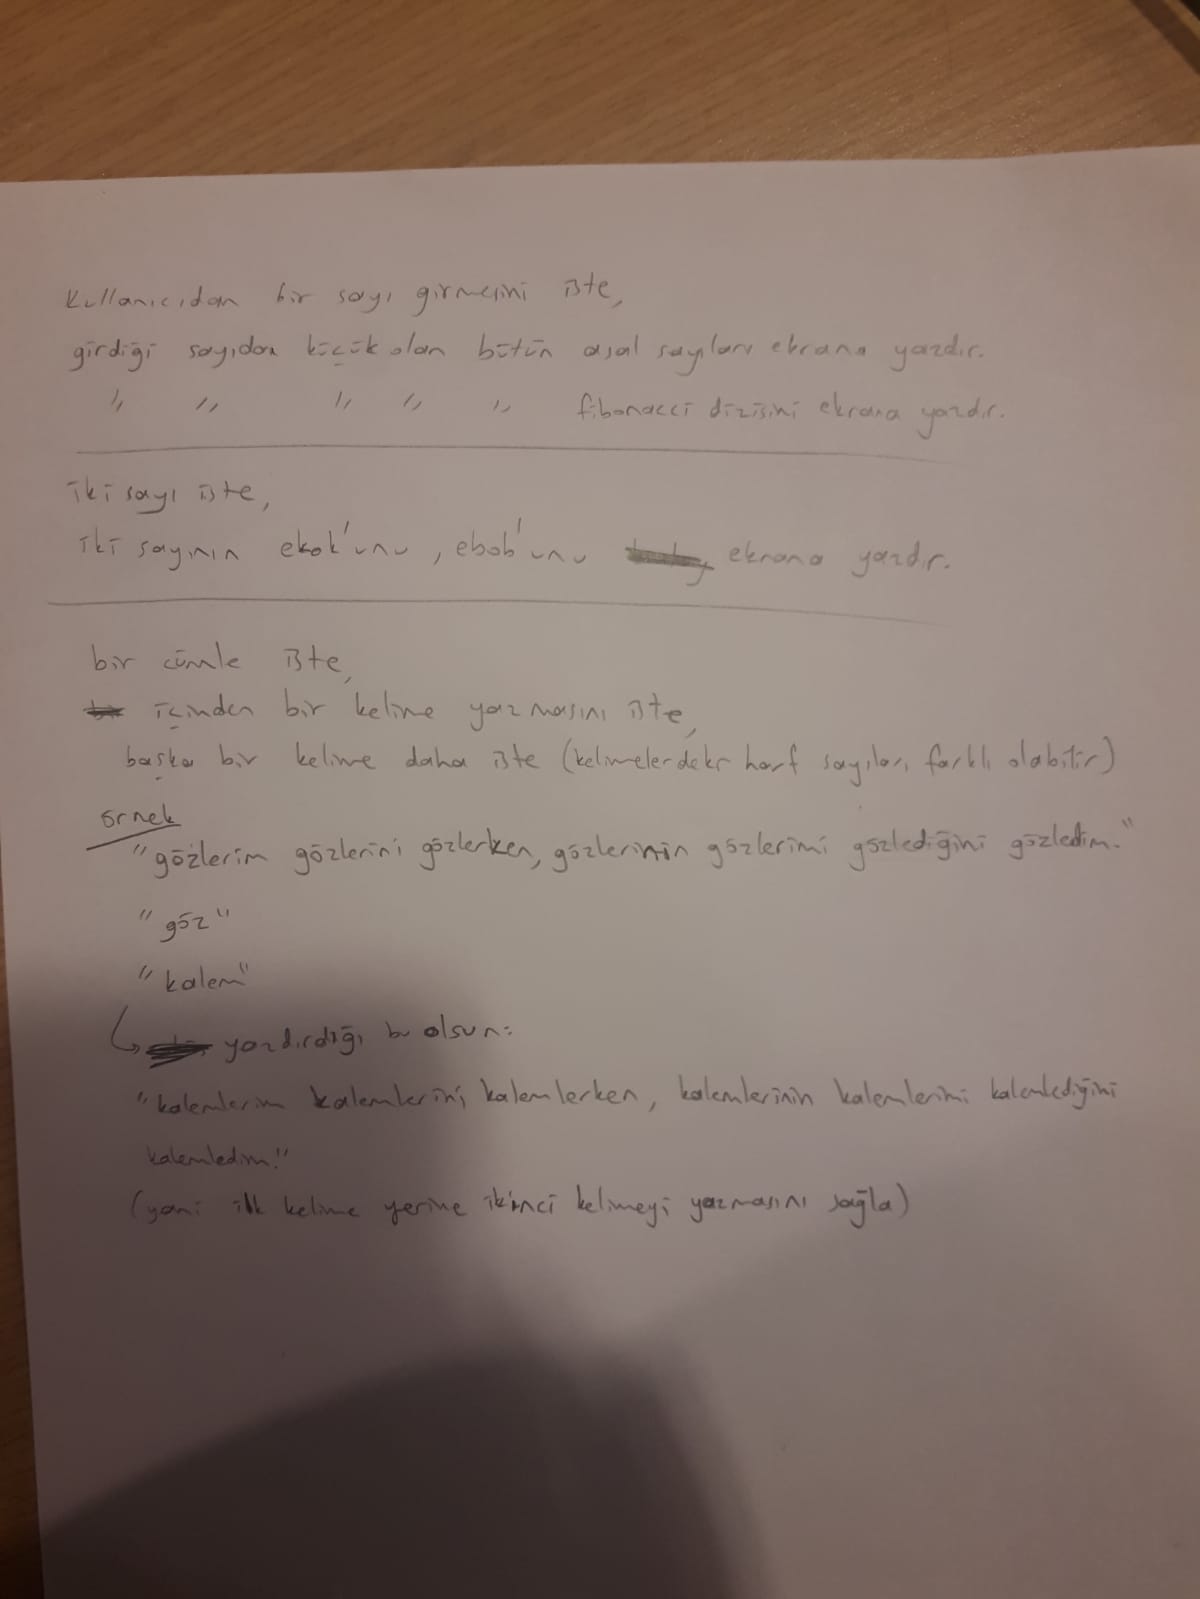 Kullanıcıdan bir sayı girmesini iste,
girdiği sayıdan küçük olan bütün asal sayıları ekrana yazdır.
" " " " " fibonacci dizisini ekrana yazdır.
iki sayı iste,
iki sayının ekok'unu, ebob'unu ekrana yazdır.
bir cümle iste,
içinden bir kelime yazmasını iste,
başka bir kelime daha iste (kelimelerdeki harf sayıları farklı olabilir)
örnek
"gözlerim gözlerini gözlerken, gözlerinin gözlerimi gözlediğini gözledim."
"göz"
"kalem"
yazdırdığı bu olsun:
"kalemlerim kalemlerini kalemlerken, kalemlerinin kalemlerimi kalemlediğini
kalemledim!"
(yani ilk kelime yerine ikinci kelimeyi yazmasını sağla)